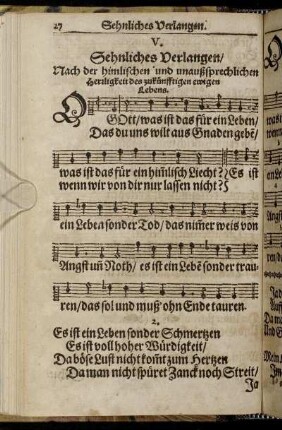 27 Sehnliches Verlangen.
V.
Sehnliches Verlangen/
Nach der himlischen und unaußsprechlichen
Herrligkeit des zukünfftigen ewigen
Lebens.
O GOtt/ was ist das für ein Leben/
Das du uns wilt aus Gnaden gebē/
was ist das für ein him̄lisch Liecht? Es ist
wenn wir von dir nur lassen nicht?
ein Leben sonder Tod/ das nim̄er weis von
Angst uñ Noth/ es ist ein Lebē sonder trau-
ren/ das sol und muß ohn Ende tauren.
2.
Es ist ein Leben sonder Schmertzen
Es ist voll hoher Würdigkeit/
Da böse Lust nicht kom̄t zum Hertzen
Da man nicht spüret Zanck noch Streit/
Ja